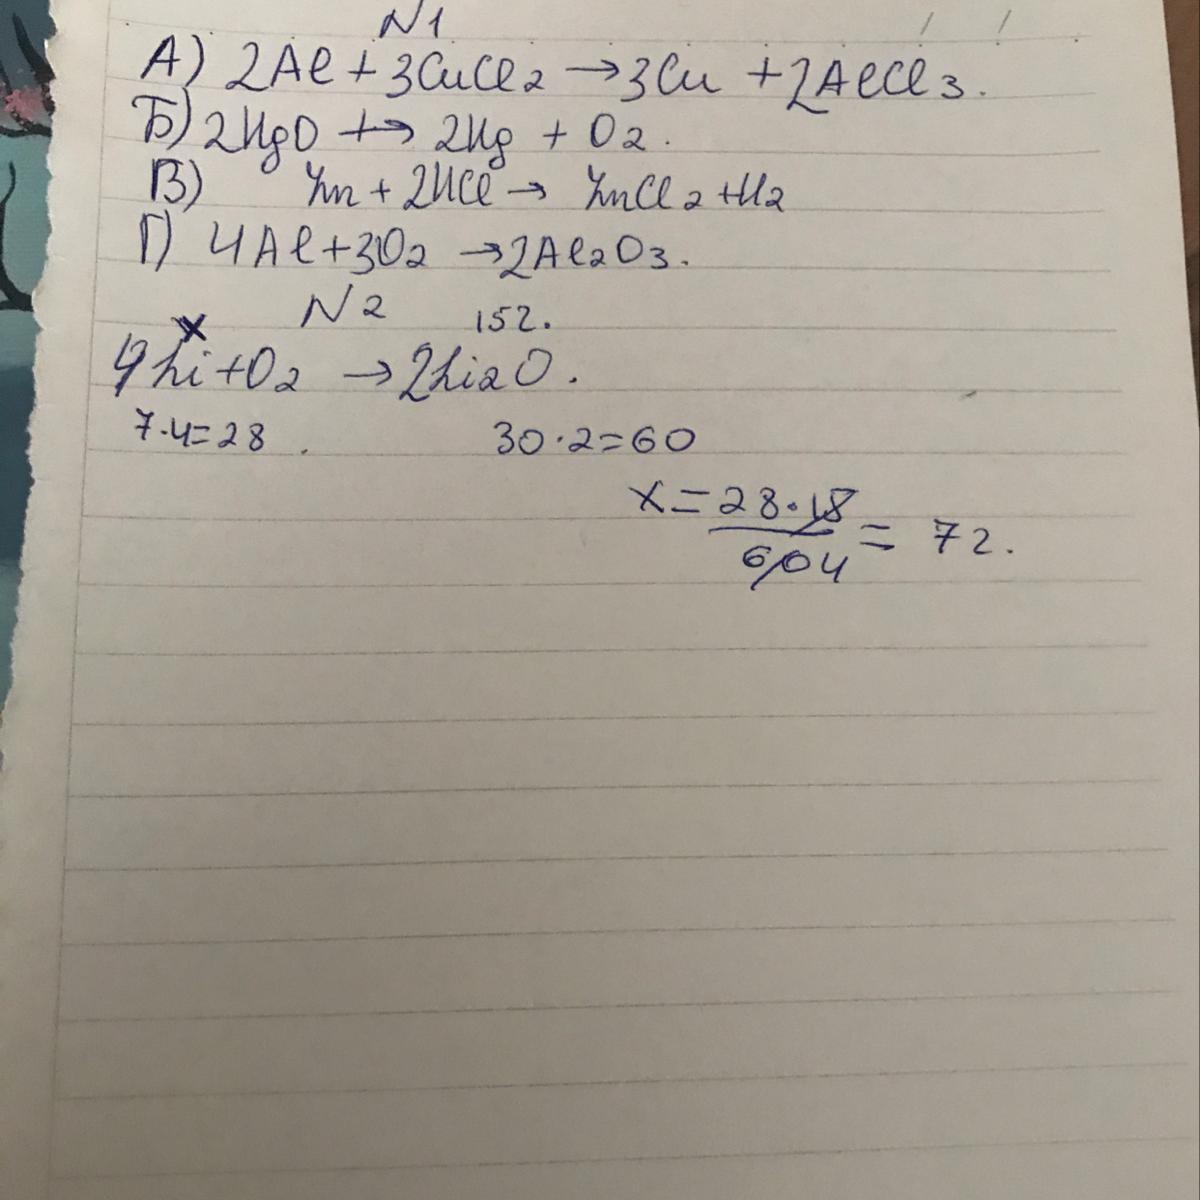 N1
А) 2Al + 3CuCl2 → 3Cu + 2AlCl3.
Б) 2HgO → 2Hg + O2.
В) Zn + 2HCl → ZnCl2 + H2
Г) 4Al + 3O2 → 2Al2O3.
N2
x 15г.
4Li + O2 → 2Li2O.
7·4=28. 30·2=60
x = 28·15 / 60 4 = 7г.